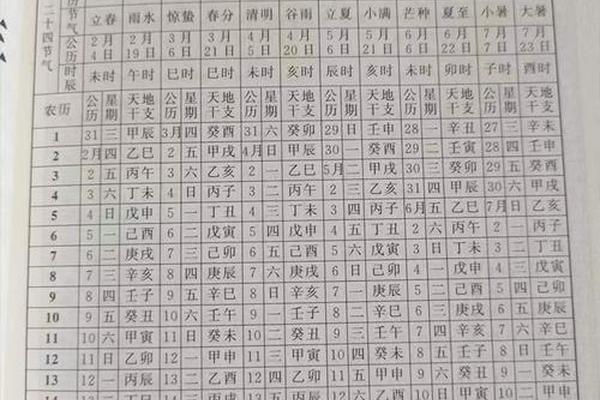 二十四节气
历节气 立春 雨水 惊蛰 春分 清明 谷雨 立夏 小满 芒种 夏至 小暑 大暑
公历 2月4日 2月19日 3月6日 3月21日 4月5日 4月20日 5月6日 5月21日 6月6日 6月22日 7月7日 7月23日
时辰 未时 午时 巳时 巳时 未时 亥时 辰时 亥时 未时 卯时 子时 酉时
农历 公历 星期 天地干支 公历 星期 天地干支 公历 星期 天地干支 公历 星期 天地干支 公历 星期 天地干支 公历 星期 天地干支
1 31 三 甲辰 3月 四 癸酉 31 六 癸卯 29 日 壬申 28 一 辛丑 27 三 辛未
2 2月 四 乙巳 2 五 甲戌 4月 日 甲辰 30 一 癸酉 29 二 壬寅 28 四 壬申
3 2 五 丙午 3 六 乙亥 2 一 乙巳 5月 二 甲戌 30 三 癸卯 29 五 癸酉
4 3 六 丁未 4 日 丙子 3 二 丙午 2 三 乙亥 31 四 甲辰 30 六 甲戌
5 4 日 戊申 5 一 丁丑 4 三 丁未 3 四 丙子 6月 五 乙巳 7月 日 乙亥
6 5 一 己酉 6 二 戊寅 5 四 戊申 4 五 丁丑 2 六 丙午 2 一 丙子
7 6 二 庚戌 7 三 己卯 6 五 己酉 5 六 戊寅 3 日 丁未 3 二 丁丑
8 7 三 辛亥 8 四 庚辰 7 六 庚戌 6 日 己卯 4 一 戊申 4 三 戊寅
9 8 四 壬子 9 五 辛巳 8 日 辛亥 7 一 庚辰 5 二 己酉 5 四 己卯
10 9 五 癸丑 10 六 壬午 9 一 壬子 8 二 辛巳 6 三 庚戌 6 五 庚辰
11 10 六 甲寅 11 日 癸未 10 二 癸丑 9 三 壬午 7 四 辛亥 7 六 辛巳
12 11 日 乙卯 12 一 甲申 11 三 甲寅 10 四 癸未 8 五 壬子 8 日 壬午
13 12 一 丙辰 13 二 乙酉 12 四 乙卯 11 五 甲申 9 六 癸丑 9 一 癸未
14